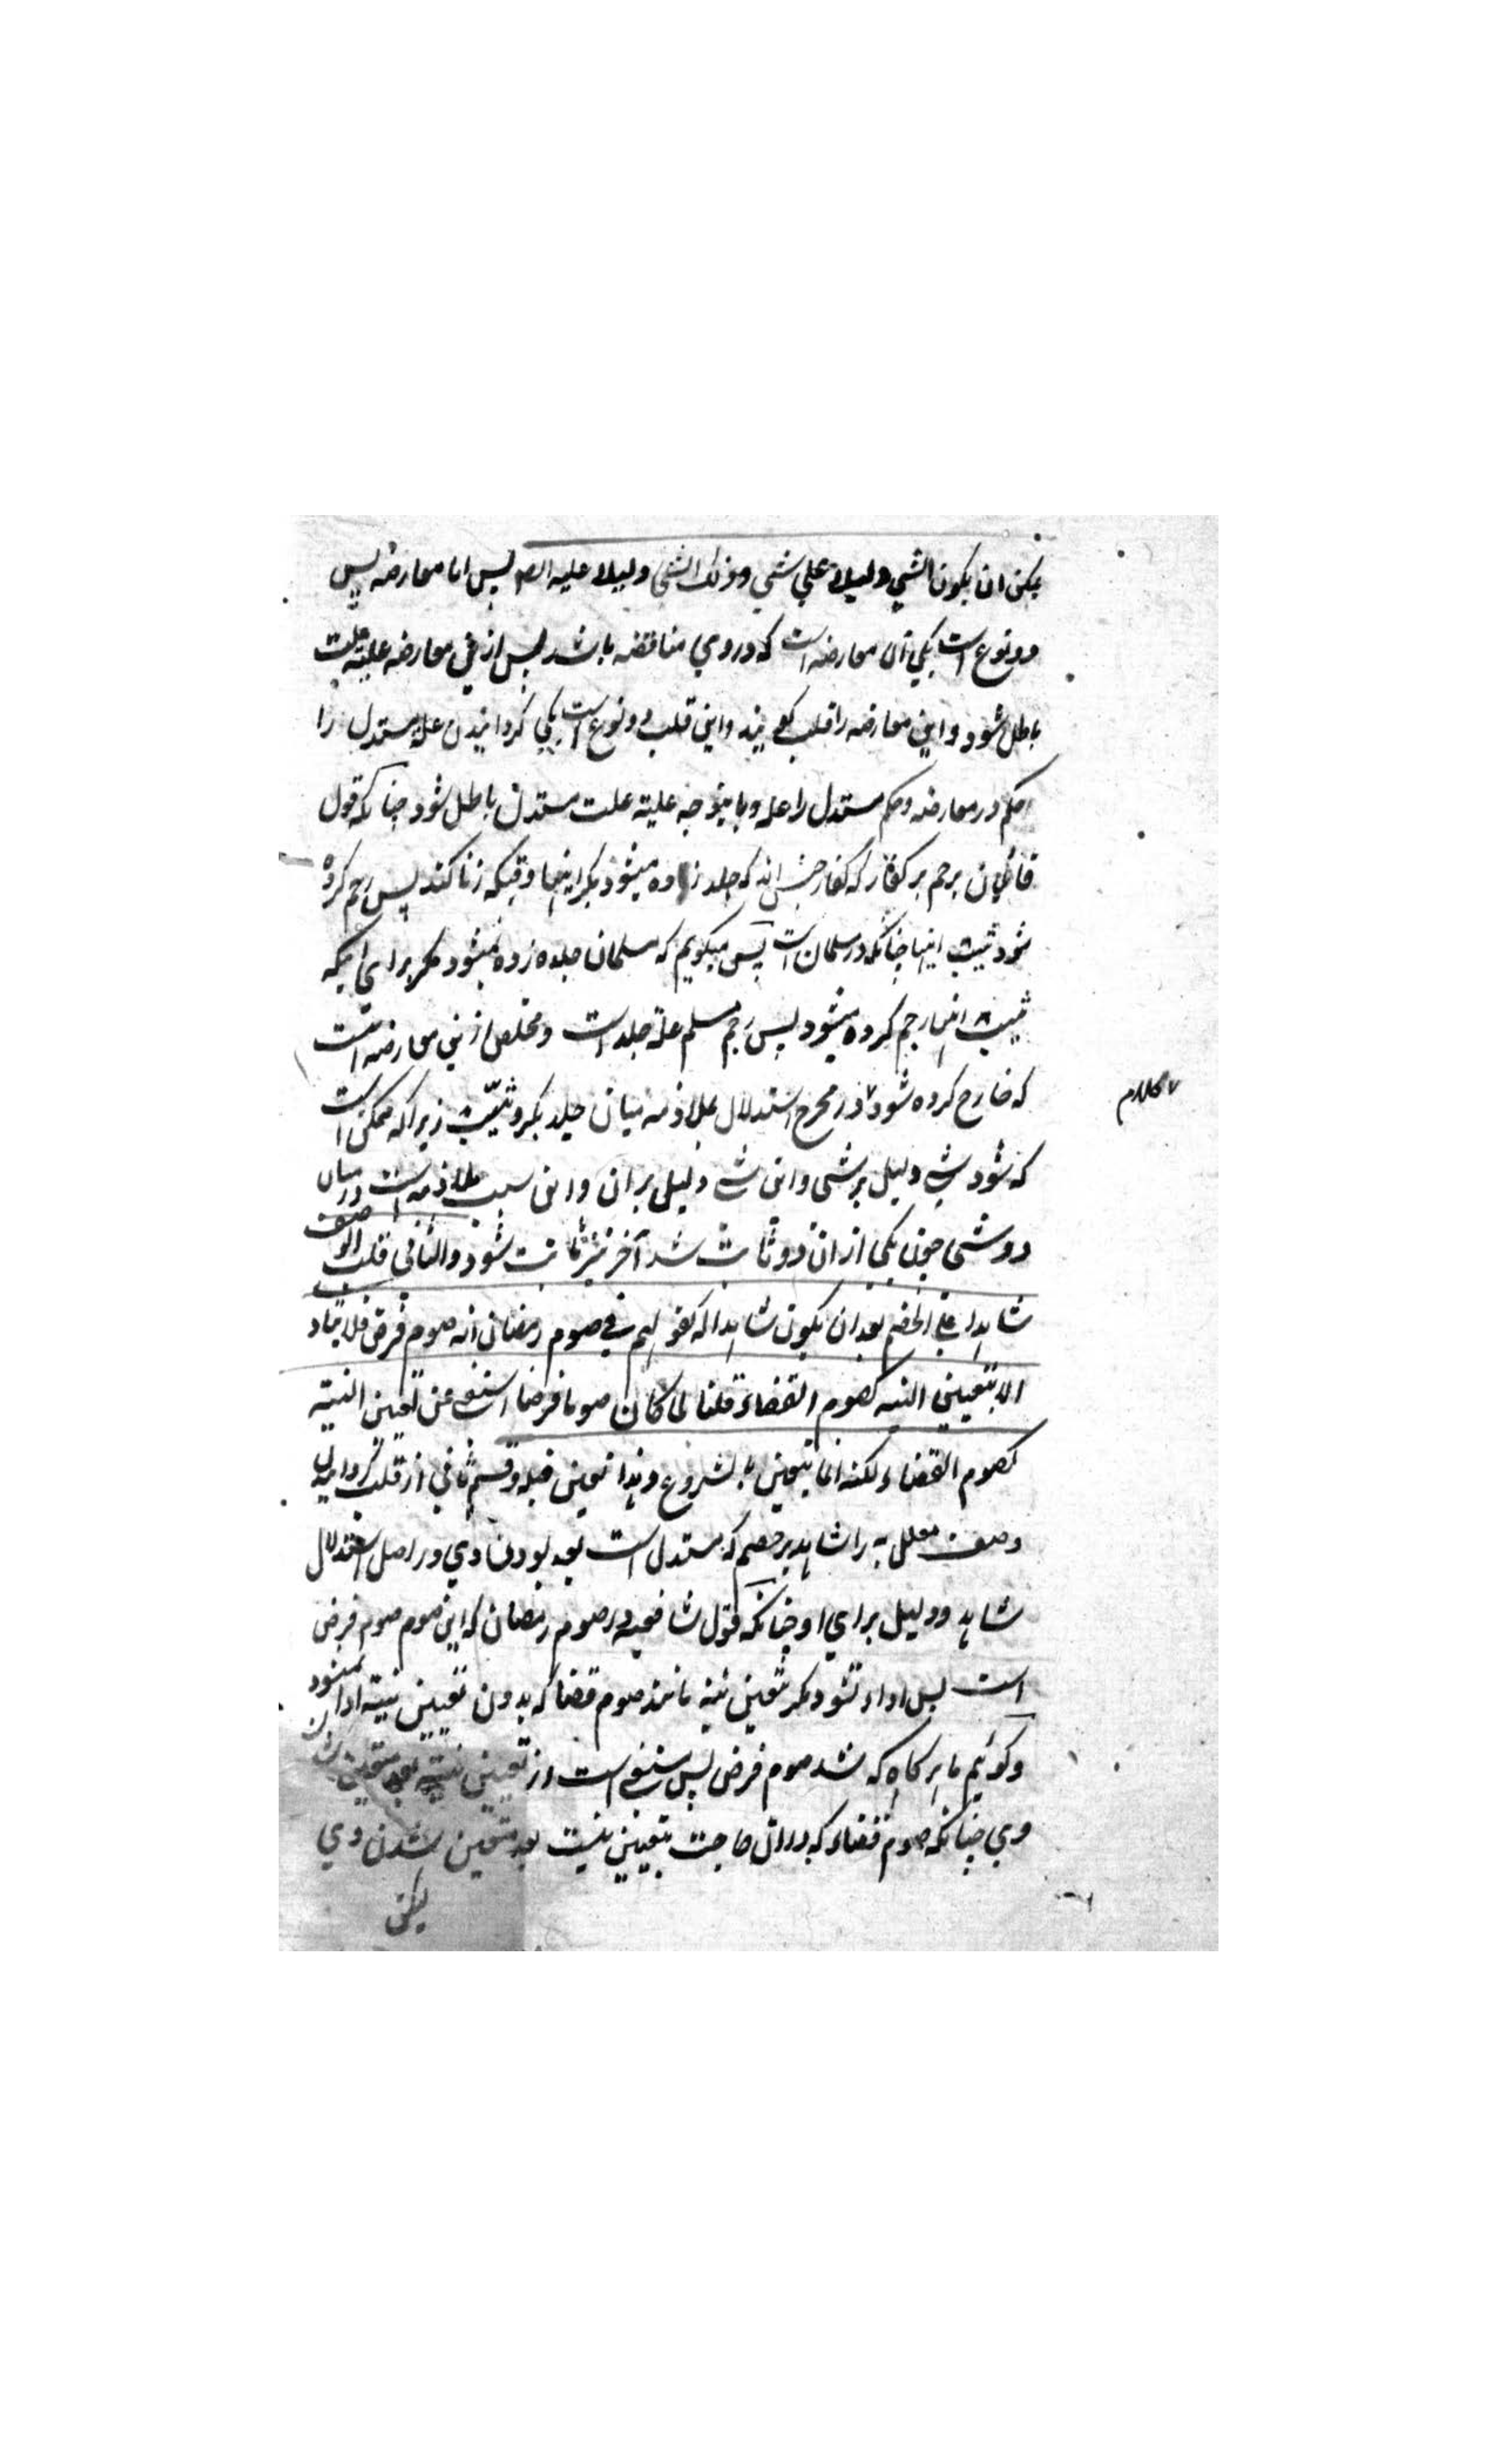 یمکن ان یکون الشی دلیلا علی شی وذلک الشی دلیلا علیه ایضا پس اما معارضه پس
دو نوع است یکی آن معارضه است که در وی مناقضه باشد پس ازین معارضه علیة علت
باطل شود و این معارضه را قلب گویند و این قلب دو نوع است یکی گردانیدن علة مستدل را
حکم در معارضه و حکم مستدل را علة و باینوجه علیة علت مستدل باطل شود چنانکه قول
قائلان برجم بر کفار که کفار جنسی اند که جلد زده میشود بکر اینها وقتیکه زنا کند پس رجم کرده
شود ثیب اینها چنانکه در مسلمان است پس میگویم که مسلمان جلده زده نمیشود مکر برای اینکه
ثیب اینها رجم کرده میشود پس رجم مسلم علة جلد است و مخلص ازین معارضه است
که خارج کرده شود در مخرج استدلال بملازمه میان جلد بکر و ثیب زیرا که ممکن است
کلام
که شود شی دلیل بر شی و این شی دلیل بر آن و این سبب ملازمه است در میان
دو شی چون یکی از ان دو ثابت شد آخر نیز ثابت شود والثانی قلب الوصف
شاهدا علی الخصم بعد ان یکون شاهدا له کقولهم فی صوم رمضان انه صوم فرض فلا یتاد
الا بتعیین النیه کصوم القضاء قلنا لما کان صوما فرضا استغنی عن تعیین النیة
کصوم القضاء لکنه انما یتعین بالشروع وهذا تعین قبله و قسم ثانی از قلب گردانیدن
وصف معلل به را شاهد بر خصم که مستدل است بعد بودن وی در اصل استدلال
شاهد و دلیل برای او چنانکه قول شافعیه در صوم رمضان که این صوم صوم فرض
است پس اداء نشود مکر بتعین نیة مانند صوم قضا که بدون تعیین نیة ادا نمیشود
و گوئیم ما هر کاه که شد صوم فرض پس مستغنی است از تعیین نیة بعد متعین شدن
وی چنانکه صوم قضاء که در ان حاجت بتعیین نیت بعد متعین شدن وی
لیکن